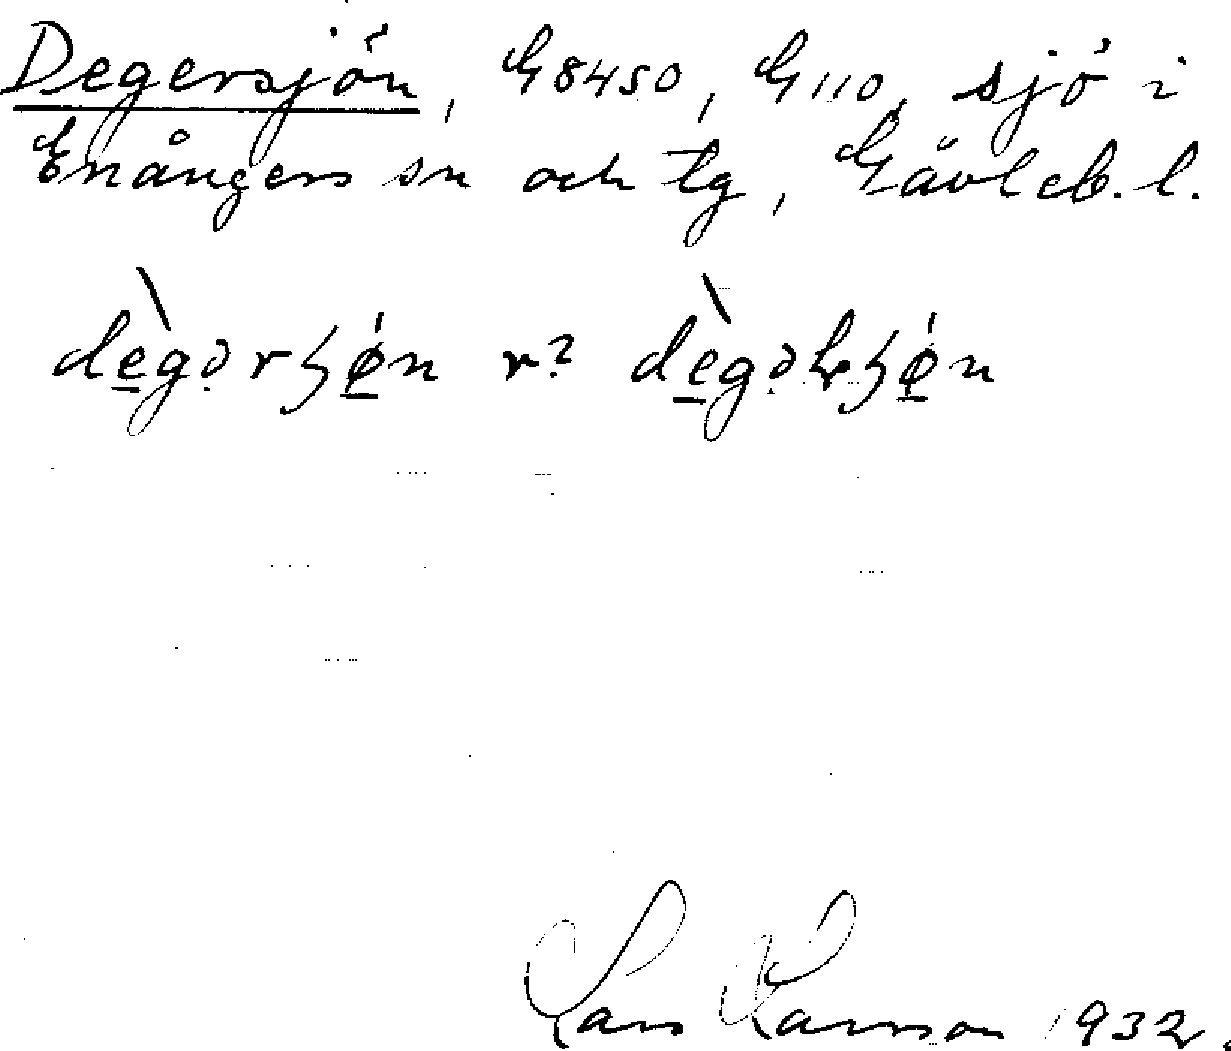 Degersjön, G8450, G110, sjö i
Enångers sn och tg, Gävleb. l.
dègərʃø̀n r? dègəʃøn
Lars Larsson 1932.